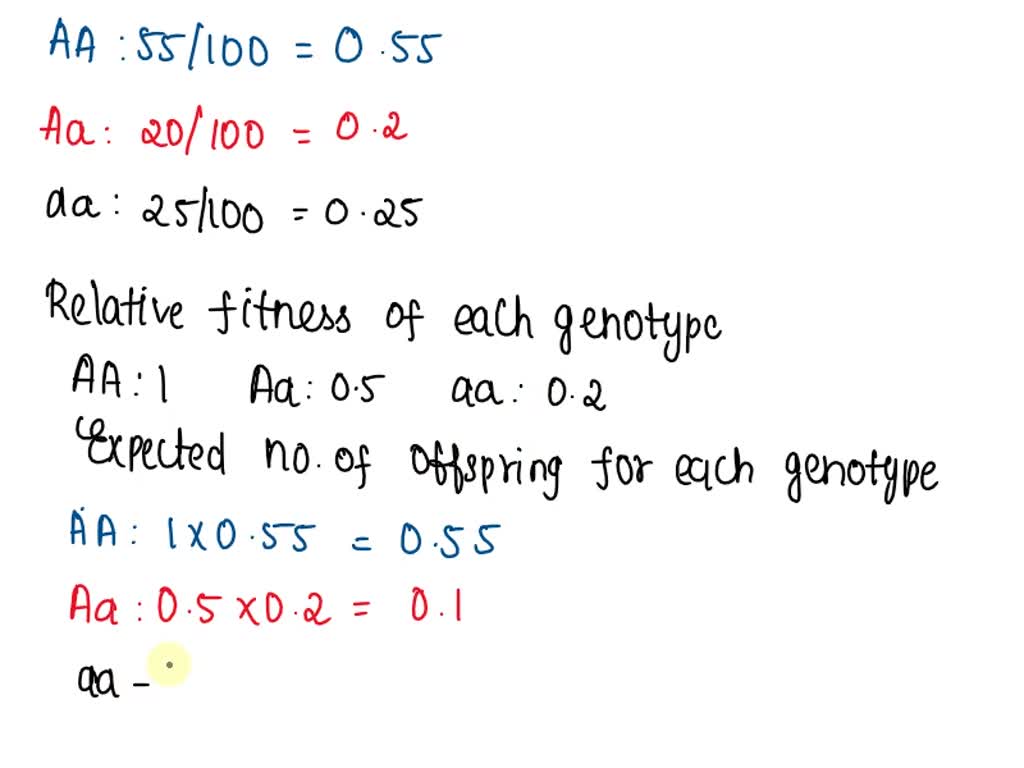 AA : 55/100 = 0.55
Aa : 20/100 = 0.2
aa : 25/100 = 0.25
Relative fitness of each genotype
AA : 1 Aa : 0.5 aa : 0.2
Expected no. of offspring for each genotype
AA : 1 x 0.55 = 0.55
Aa : 0.5 x 0.2 = 0.1
aa -